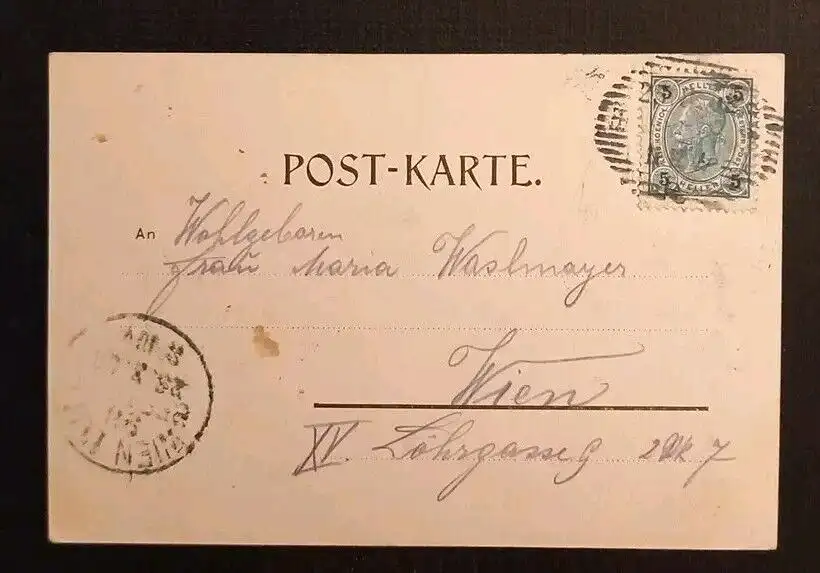 POST-KARTE.
5 HELLER 5
5 HELLER 5
An Wohlgeboren
Frau Maria Waslmayer
Wien
XV. Löhrgasse 9
WIEN